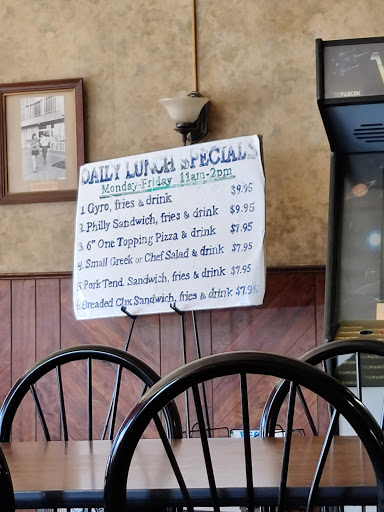 DAILY LUNCH SPECIALS
Monday-Friday 11am-2pm
1. Gyro, fries & drink $9.95
2. Philly Sandwich, fries & drink $9.95
3. 6" One Topping Pizza & drink $7.95
4. Small Greek or Chef Salad & drink $7.95
5. Pork Tend. Sandwich, fries & drink $7.95
6. Breaded Chx Sandwich, fries & drink $7.95